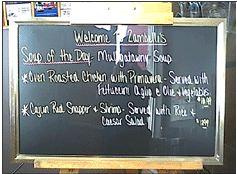 Welcome To Zambelli's
Soup of the Day: Mulligatawny Soup
* Oven Roasted Chicken with Primavera - Served with
Fettuccini Aglio e Olio & Vegetables
* Cajun Red Snapper & Shrimp - Served with Rice &
Caesar Salad